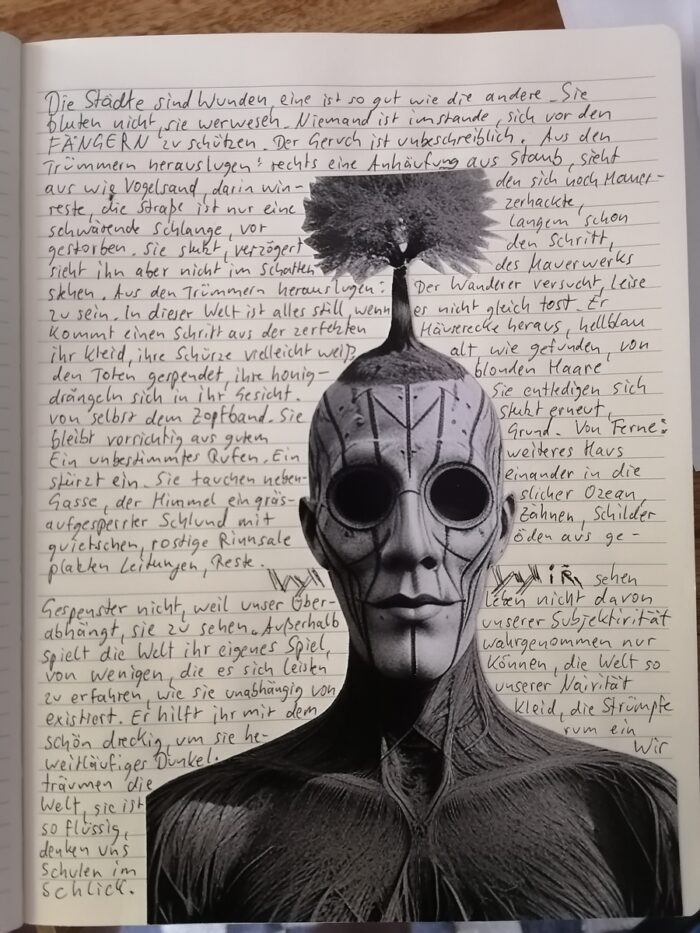 Die Städte sind Wunden, eine ist so gut wie die andere. Sie
bluten nicht, sie verwesen. Niemand ist imstande, sich vor den
FÄNGERN zu schützen. Der Geruch ist unbeschreiblich. Aus den
Trümmern herauslugen: rechts eine Anhäufung aus Staub, sieht
aus wie Vogelsand, darin win- den sich noch Mauer-
reste, die Straße ist nur eine zerhackte,
schwärende Schlange, vor langem schon
gestorben. Sie stutzt, verzögert den Schritt,
sieht ihn aber nicht im Schatten des Mauerwerks
stehen. Aus den Trümmern herauslugen: Der Wanderer versucht, leise
zu sein. In dieser Welt ist alles still, wenn es nicht gleich tost. Er
kommt einen Schritt aus der zerfetzten Häuserecke heraus, hellblau
ihr Kleid, ihre Schürze vielleicht weiß, alt wie gefunden, von
den Toten gespendet, ihre honig- blonden Haare
drängeln sich in ihr Gesicht. Sie entledigen sich
von selbst dem Zopfband. Sie stutzt erneut,
bleibt vorsichtig aus gutem Grund. Von Ferne:
Ein unbestimmtes Rufen. Ein weiteres Haus
stürzt ein. Sie tauchen neben- einander in die
Gasse, der Himmel ein gräs- slicher Ozean,
aufgesperrter Schlund mit Zähnen, Schilder
quietschen, rostige Rinnsale öden aus ge-
plakten Leitungen, Reste.
WIR sehen
Gespenster nicht, weil unser Über- leben nicht davon
abhängt, sie zu sehen. Außerhalb unserer Subjektivität
spielt die Welt ihr eigenes Spiel, wahrgenommen nur
von wenigen, die es sich leisten können, die Welt so
zu erfahren, wie sie unabhängig von unserer Naivität
existiert. Er hilft ihr mit dem Kleid, die Strümpfe
schön dreckig, um sie he- rum ein
weitläufiges Dunkel. Wir
träumen die
Welt, sie ist
so flüssig,
denken uns
Schulen im
Schlick.